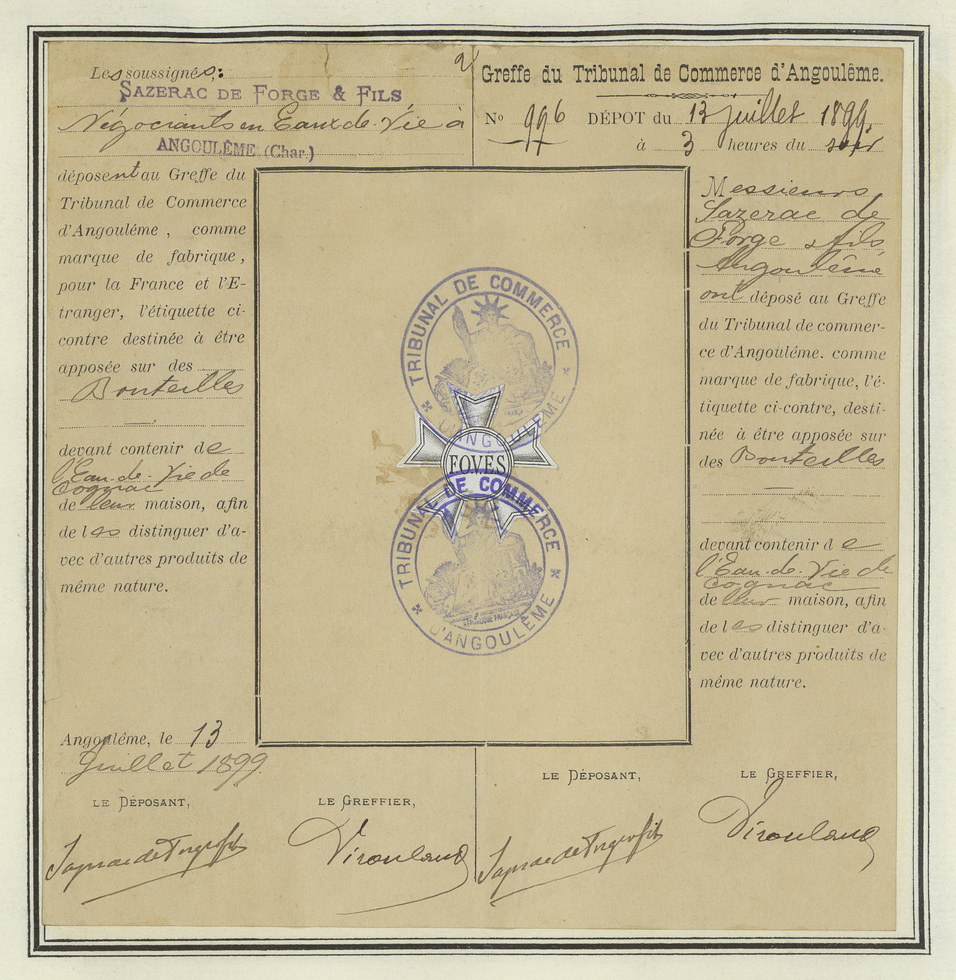 Les soussignés:
SAZERAC DE FORGE & FILS
Négociants en Eaux-de-Vie à
ANGOULÊME (Char.)
déposent au Greffe du
Tribunal de Commerce
d'Angoulême, comme
marque de fabrique,
pour la France et l'E-
tranger, l'étiquette ci-
contre destinée à être
apposée sur des
Bouteilles
devant contenir de
l'Eau-de-Vie de
Cognac
de leur maison, afin
de les distinguer d'a-
vec d'autres produits de
même nature.
Angoulême, le 13
Juillet 1899
LE DÉPOSANT,
LE GREFFIER,
Sazerac de Forge & fils
TRIBUNAL DE COMMERCE
D'ANGOULÊME
F.O.V.E.S
TRIBUNAL DE COMMERCE
D'ANGOULÊME
Greffe du Tribunal de Commerce d'Angoulême.
No 996 DÉPOT du 13 Juillet 1899,
à 3 heures du soir
Messieurs
Sazerac de
Forge & fils
Angoulême
ont déposé au Greffe
du Tribunal de commer-
ce d'Angoulême. comme
marque de fabrique, l'é-
tiquette ci-contre, desti-
née à être apposée sur
des Bouteilles
devant contenir de
l'Eau-de-Vie de
Cognac
de leur maison, afin
de les distinguer d'a-
vec d'autres produits de
même nature.
LE DÉPOSANT,
LE GREFFIER,
Sazerac de Forge & fils